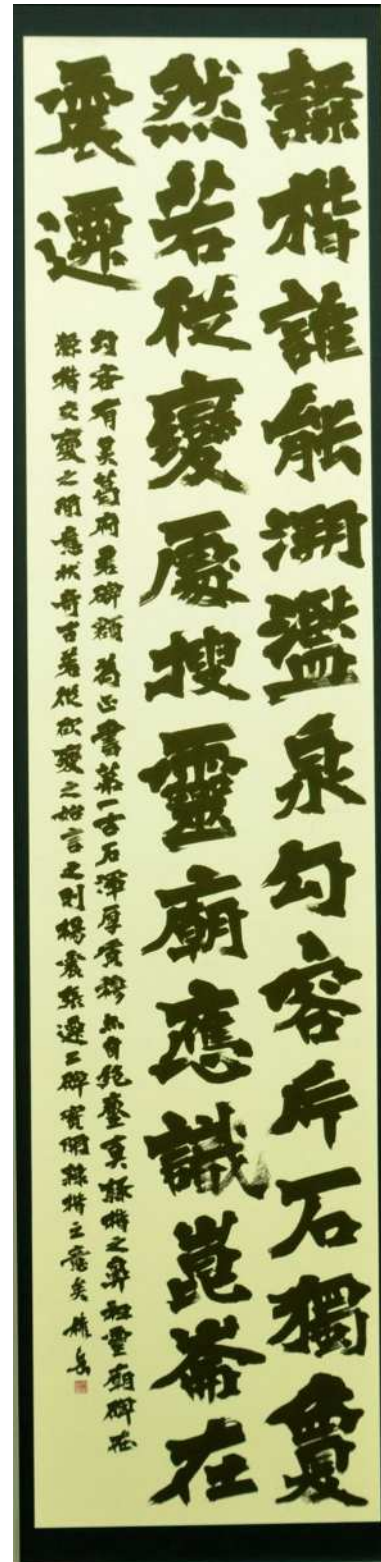 隸楷誰能溯濫泉勾容片石獨夐
然若從變處搜靈廟應識崑崙在
震遷
勾容有吳葛府君碑額為正書第一古石渾厚質穆自絕塵真隸楷之鼻祖靈廟碑在
隸楷交變之間意狀奇古若從欲變之始言之則楊震張遷二碑實開隸楷之意矣